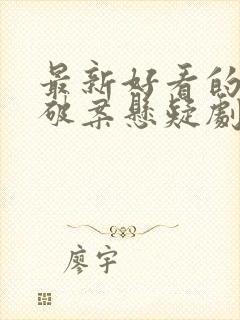 最新好看的
破案懸疑劇
廖宇